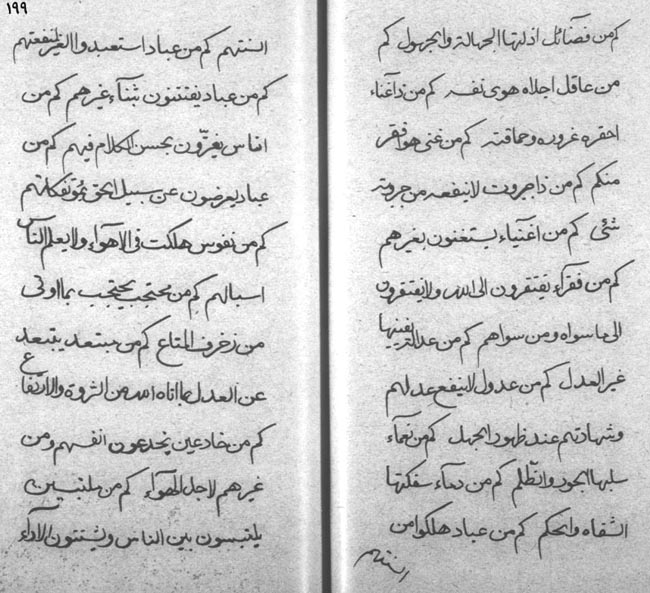 ١٩٩
كم من فضآئل اذلتها الجهالة والجهول كم
من عاقل اجلاه هوى نفسه كم من ذا غناء
احقره غروره وحماقته كم من غنى هو افقر
منكم كم من ذا جبروت لا ينفعه من جبروته
شئ كم من اغنيآء يستغنون بغيرهم
كم من فقرآء يفتقرون الى الله ولا يفتقرون
الى ما سواه ومن سواهم كم من عدالة يفنيها
غير العدل كم من عدول لا ينفع عدلهم
وشهادتهم عند ظهور الجهل كم من نعمآء
سلبها الجود والظلم كم من دمآء سفكتها
الشفاه والحكم كم من عباد هلكوا من
السنتهم
السنتهم كم من عباد استعبدوا الغير لمنفعتهم
كم من عباد يفتتنون بثناء غيرهم كم من
اناس يغرّون بحسن الكلام فيهم كم من
عباد يعرضون عن سبيل الحق
كم من نفوس هلكت فى الاهوآء ولا يعلم الناس
كم من محتجب يحتجب بما اوتى
من زخرف المتاع كم من مبتعد يبتعد
عن العدل بما اتاه الله من الثروة والارتفاع
كم من خادعين يخدعون انفسهم ومن
غيرهم لاجل الهوآء كم من ملتبسين
يلتبسون بين الناس ويشتتون الآرآء